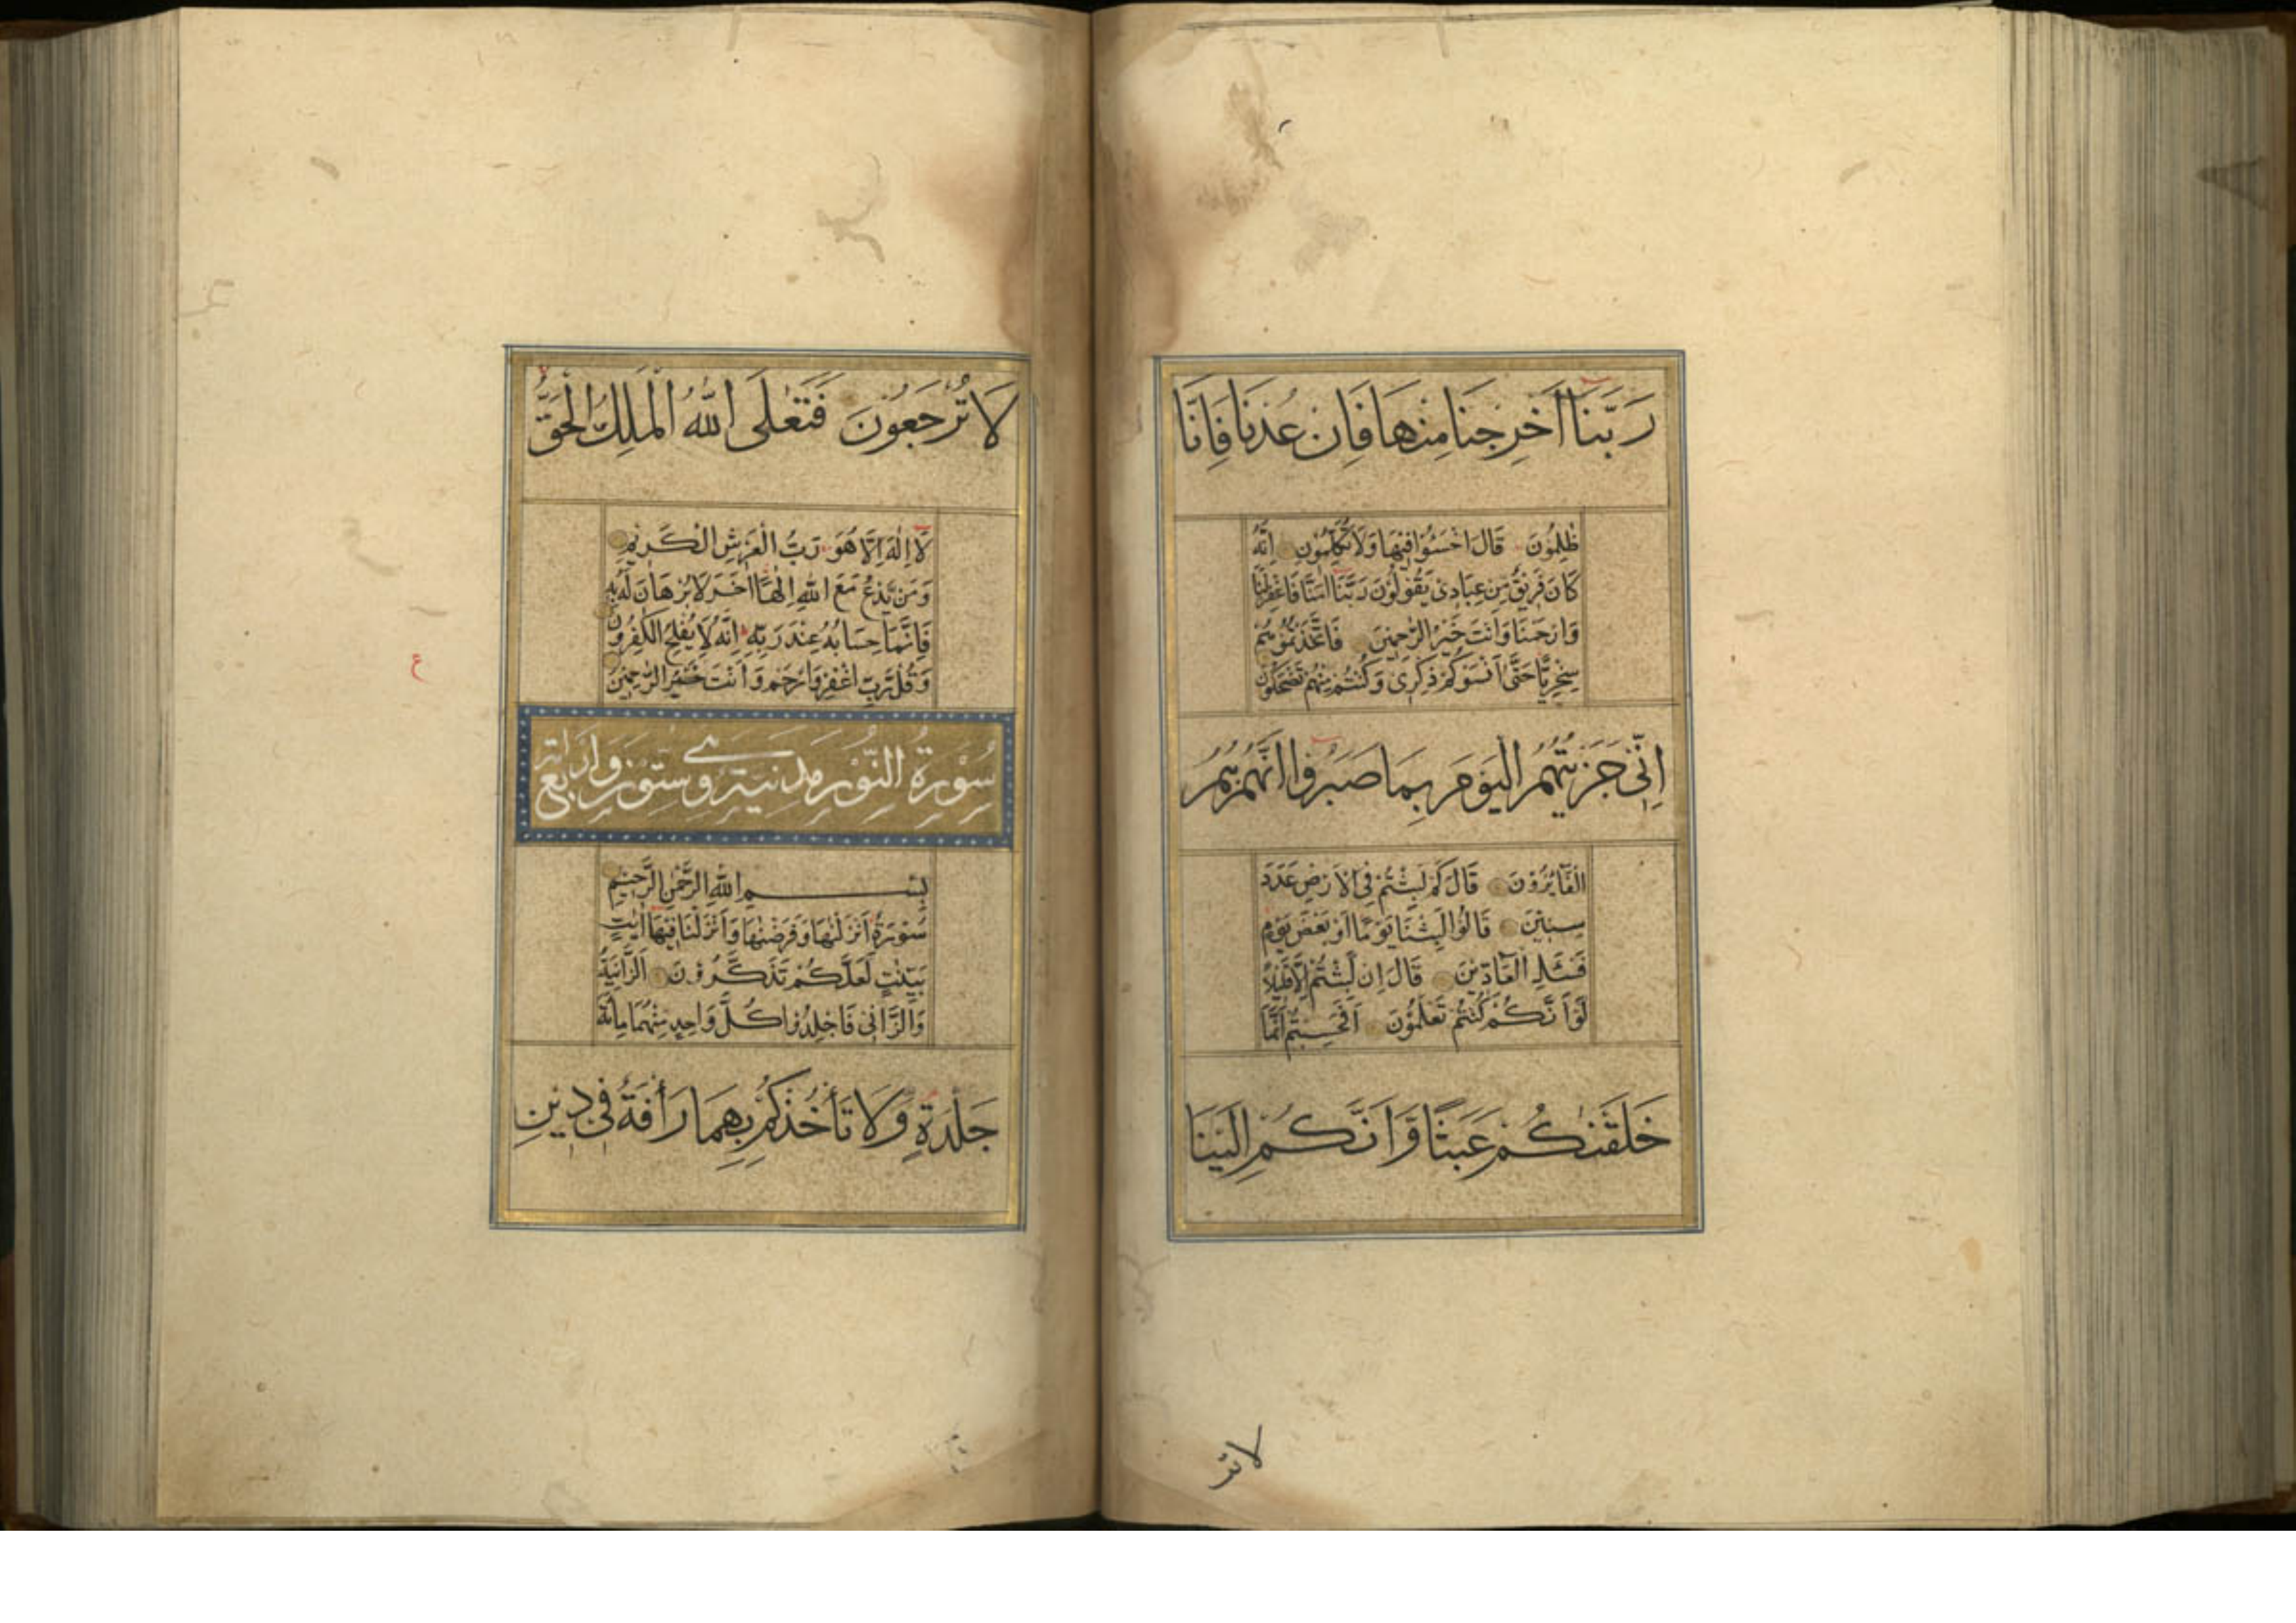 رَبَّنَا اَخرِجنَا مِنهَا فَاِن عُدنَا فَاِنَّا
ظٰلِمُونَ قَالَ اخْسَئُوْا فِيْهَا وَلَا تُكَلِّمُوْنِ اِنَّهُ
كَانَ فَرِيْقٌ مِّنْ عِبَادِىْ يَقُوْلُوْنَ رَبَّنَا اٰمَنَّا فَاغْفِرْلَنَا
وَارْحَمْنَا وَاَنْتَ خَيْرُ الرّٰحِمِيْنَ فَاتَّخَذْتُمُوْهُمْ
سِخْرِيًّا حَتّٰى اَنْسَوْكُمْ ذِكْرِىْ وَكُنْتُمْ مِّنْهُمْ تَضْحَكُوْنَ
اِنِّىْ جَزَيْتُهُمُ الْيَوْمَ بِمَا صَبَرُوْا اَنَّهُمْ هُمُ
الْفَآئِزُوْنَ قَالَ كَمْ لَبِثْتُمْ فِى الْاَرْضِ عَدَدَ
سِنِيْنَ قَالُوْا لَبِثْنَا يَوْمًا اَوْ بَعْضَ يَوْمٍ
فَسْئَلِ الْعَآدِّيْنَ قَالَ اِنْ لَّبِثْتُمْ اِلَّا قَلِيْلًا
لَّوْ اَنَّكُمْ كُنْتُمْ تَعْلَمُوْنَ اَفَحَسِبْتُمْ اَنَّمَا
خَلَقْنٰكُمْ عَبَثًا وَّاَنَّكُمْ اِلَيْنَا
لا تر
لَا تُرْجَعُوْنَ فَتَعٰلَى اللّٰهُ الْمَلِكُ الْحَقُّ
لَا اِلٰهَ اِلَّا هُوَ رَبُّ الْعَرْشِ الْكَرِيْمِ
وَمَنْ يَّدْعُ مَعَ اللّٰهِ اِلٰهًا اٰخَرَ لَا بُرْهَانَ لَهٗ بِهٖ
فَاِنَّمَا حِسَابُهٗ عِنْدَ رَبِّهٖ اِنَّهٗ لَا يُفْلِحُ الْكٰفِرُوْنَ
وَقُلْ رَّبِّ اغْفِرْ وَارْحَمْ وَاَنْتَ خَيْرُ الرّٰحِمِيْنَ
سُوْرَةُ النُّوْرِ مدنية وهى ستون واربع
بِسْمِ اللّٰهِ الرَّحْمٰنِ الرَّحِيْمِ
سُوْرَةٌ اَنْزَلْنٰهَا وَفَرَضْنٰهَا وَاَنْزَلْنَا فِيْهَا اٰيٰتٍ
بَيِّنٰتٍ لَّعَلَّكُمْ تَذَكَّرُوْنَ اَلزَّانِيَةُ
وَالزَّانِىْ فَاجْلِدُوْا كُلَّ وَاحِدٍ مِّنْهُمَا مِائَةَ
جَلْدَةٍ وَّلَا تَأْخُذْكُمْ بِهِمَا رَأْفَةٌ فِىْ دِيْنِ
ع